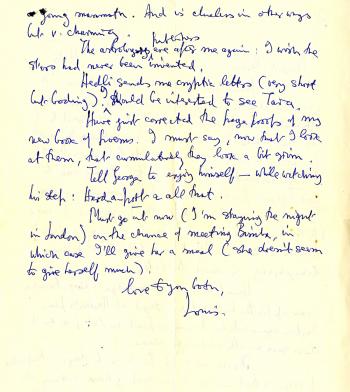 a young mammoth. And is clueless in other ways
but v. charming.
The astrology publishers are after me again: I wish the
stars had never been invented.
Hedli sends me cryptic letters (very short
but boding). I should be interested to see Tara.
Have just corrected the page proofs of my
new book of poems. I must say, now that I look
at them, that cumulatively they look a bit grim.
Tell George to enjoy himself – while watching
his step: Hard-a-port & all that.
Must go out now (I'm staying the night
in London) on the chance of meeting Bimba, in
which case I'll give her a meal (she doesn't seem
to give herself much).
Love to you both,
Louis.